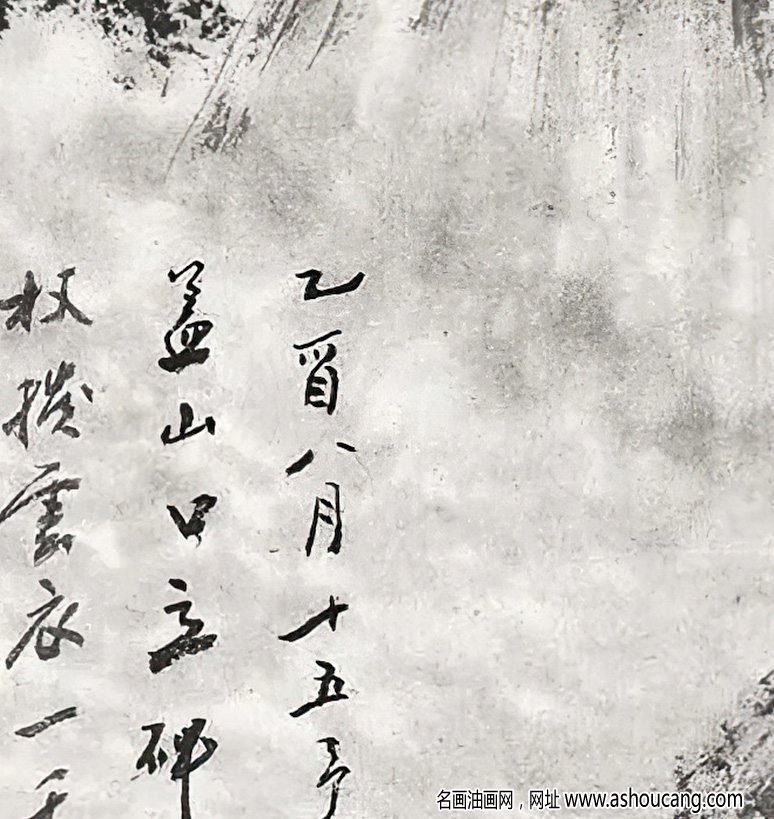 乙酉八月十五予
盖山口立碑
杖撥雲衣一
名画油画网，网址 www.ashoucang.com